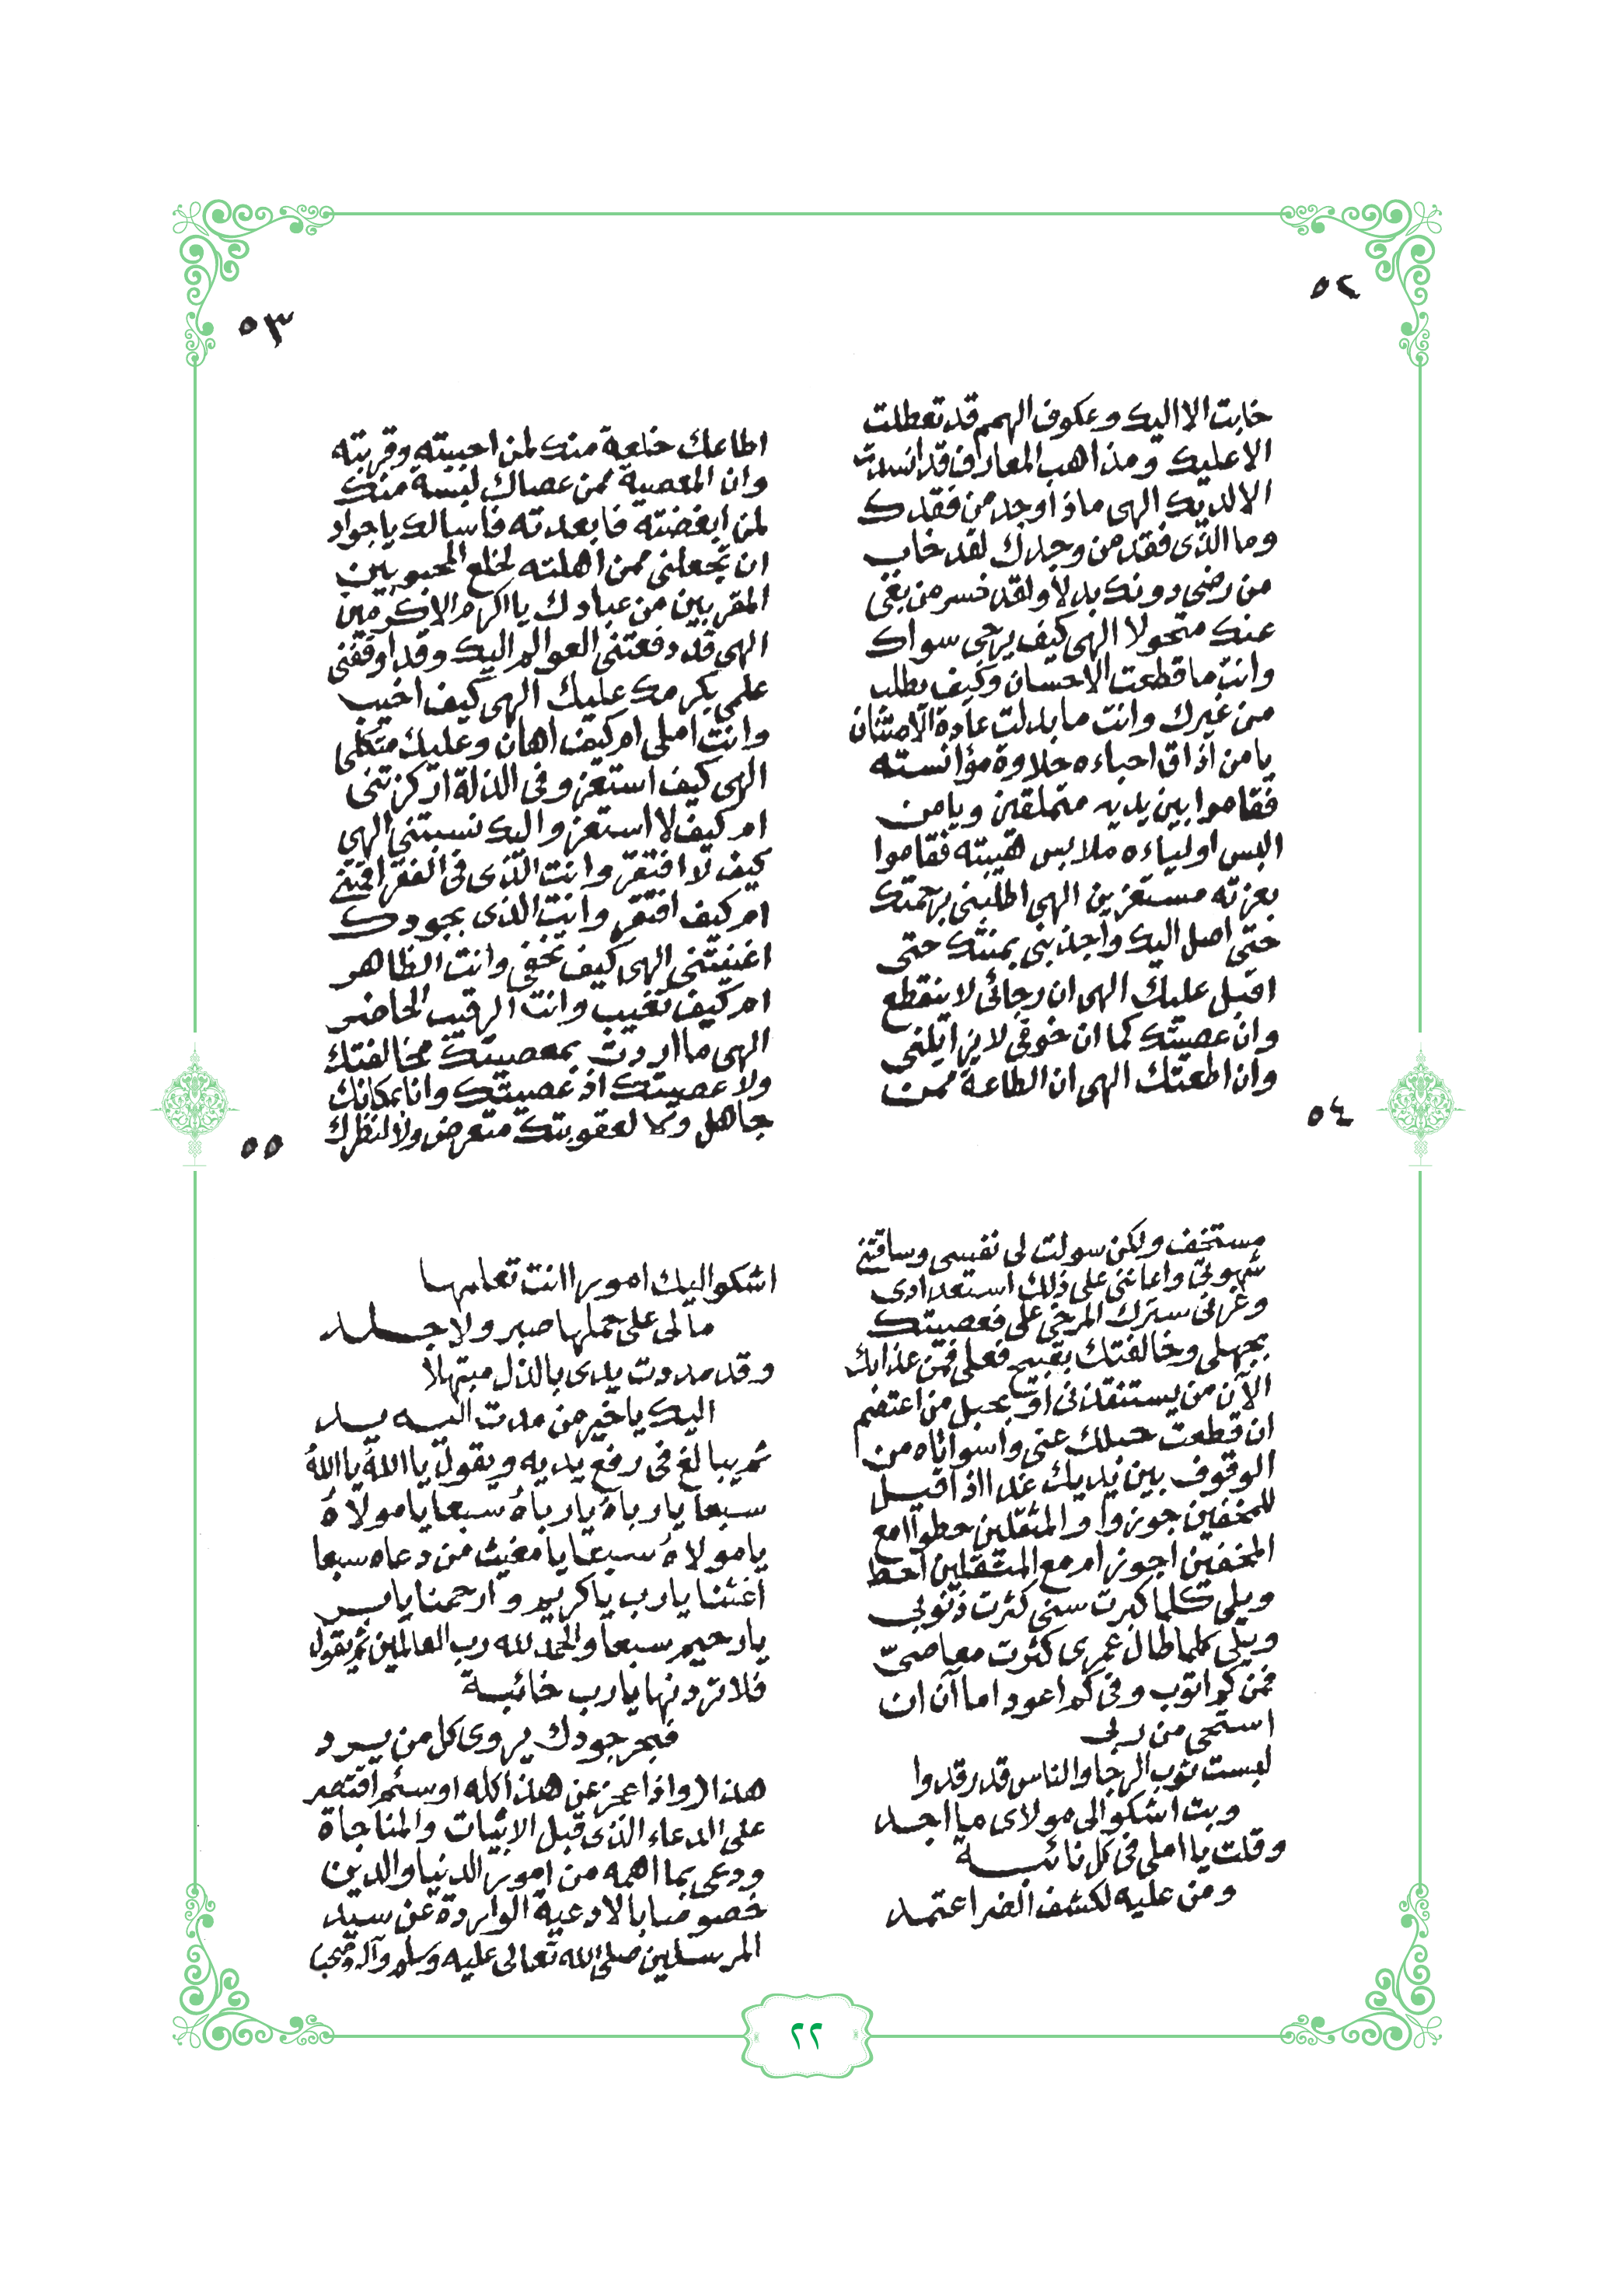 ٥٢
خابت الا اليك وعكوف الهمم قد تعطلت
الا عليك ومذاهب المعارف قد انسدت
الا لديك الهى ماذا وجد من فقدك
وما الذى فقد من وجدك لقد خاب
من رضى دونك بدلا ولقد خسر من بغى
عنك متحولا الهى كيف يرجى سواك
وانت ما قطعت الاحسان وكيف يطلب
من غيرك وانت ما بدلت عادة الامتنان
يا من اذاق احباءه حلاوة مؤانسته
فقاموا بين يديه متملقين ويا من
البس اولياءه ملابس هيبته فقاموا
بعزته مستعزين الهى اطلبنى برحمتك
حتى اصل اليك واجذبنى بمنتك حتى
اقبل عليك الهى ان رجائى لا ينقطع
وان عصيتك كما ان خوفى لا يزايلنى
وان اطعتك الهى ان الطاعة ممن
٥٣
اطاعك خلعة منك لمن احببته وقربته
وان المعصية ممن عصاك لبسة منك
لمن ابغضته فابعدته فاسالك يا جواد
ان تجعلنى ممن اهلته لخلع المحبوبين
المقربين من عبادك يا اكرم الاكرمين
الهى قد دفعتنى العوالم اليك وقد اوقفنى
علمى بكرمك عليك الهى كيف اخيب
وانت املى ام كيف اهان وعليك متكلى
الهى كيف استعز وفى الذلة اركزتنى
ام كيف لا استعز واليك نسبتنى الهى
كيف لا افتقر وانت الذى فى الفقر اقمتنى
ام كيف افتقر وانت الذى بجودك
اغنيتنى الهى كيف تخفى وانت الظاهر
ام كيف تغيب وانت الرقيب الحاضر
الهى ما اردت بمعصيتك مخالفتك
ولا عصيتك اذ عصيتك وانا بمكانك
جاهل ولا لعقوبتك متعرض ولا لنظرك
٥٤
مستخف ولكن سولت لى نفسى وساقتنى
شهوتى واعانتنى على ذلك استعدادى
وغرنى سترك المرخى على فعصيتك
بجهلى وخالفتك بقبيح فعلى فمن عذابك
الآن من يستنقذنى او بحبل من اعتصم
ان قطعت حبلك عنى واسوأتاه من
الوقوف بين يديك غدا اذا قيل
للمخفين جوزوا وللمثقلين حطوا امع
المخفين اجوز ام مع المثقلين احط
ويلى كلما كبرت سنى كثرت ذنوبى
ويلى كلما طال عمرى كثرت معاصىّ
فمن كم اتوب وفى كم اعود اما آن ان
استحى من ربى
لبست ثوب الرجا والناس قد رقدوا
وبت اشكو الى مولاى ما اجد
وقلت يا املى فى كل نائبة
ومن عليه لكشف الضر اعتمد
٥٥
اشكو اليك امورا انت تعلمها
ما لى على حملها صبر ولا جلد
وقد مددت يدى بالذل مبتهلا
اليك يا خير من مدت اليه يد
ثم يبالغ فى رفع يديه ويقول يا اللهُ يا اللهُ
سبعا يا رباهُ يا رباهُ سبعا يا مولاهُ
يا مولاهُ سبعا يا مغيث من دعاه سبعا
اغثنا يا رب يا كريم وارحمنا يا بر
يا رحيم سبعا والحمد لله رب العالمين ثم يقول
فلا تردنها يا رب خائبة
فبحر جودك يروى كل من يرد
هذا واذا عجز عن هذا كله او سئم اقتصر
على الدعاء الذى قبل الابيات والمناجاة
ودعى بما اهمه من امور الدنيا والدين
خصوصا بالادعية الواردة عن سيد
المرسلين صلى الله تعالى عليه وسلم وآله وصحبه
٢٢